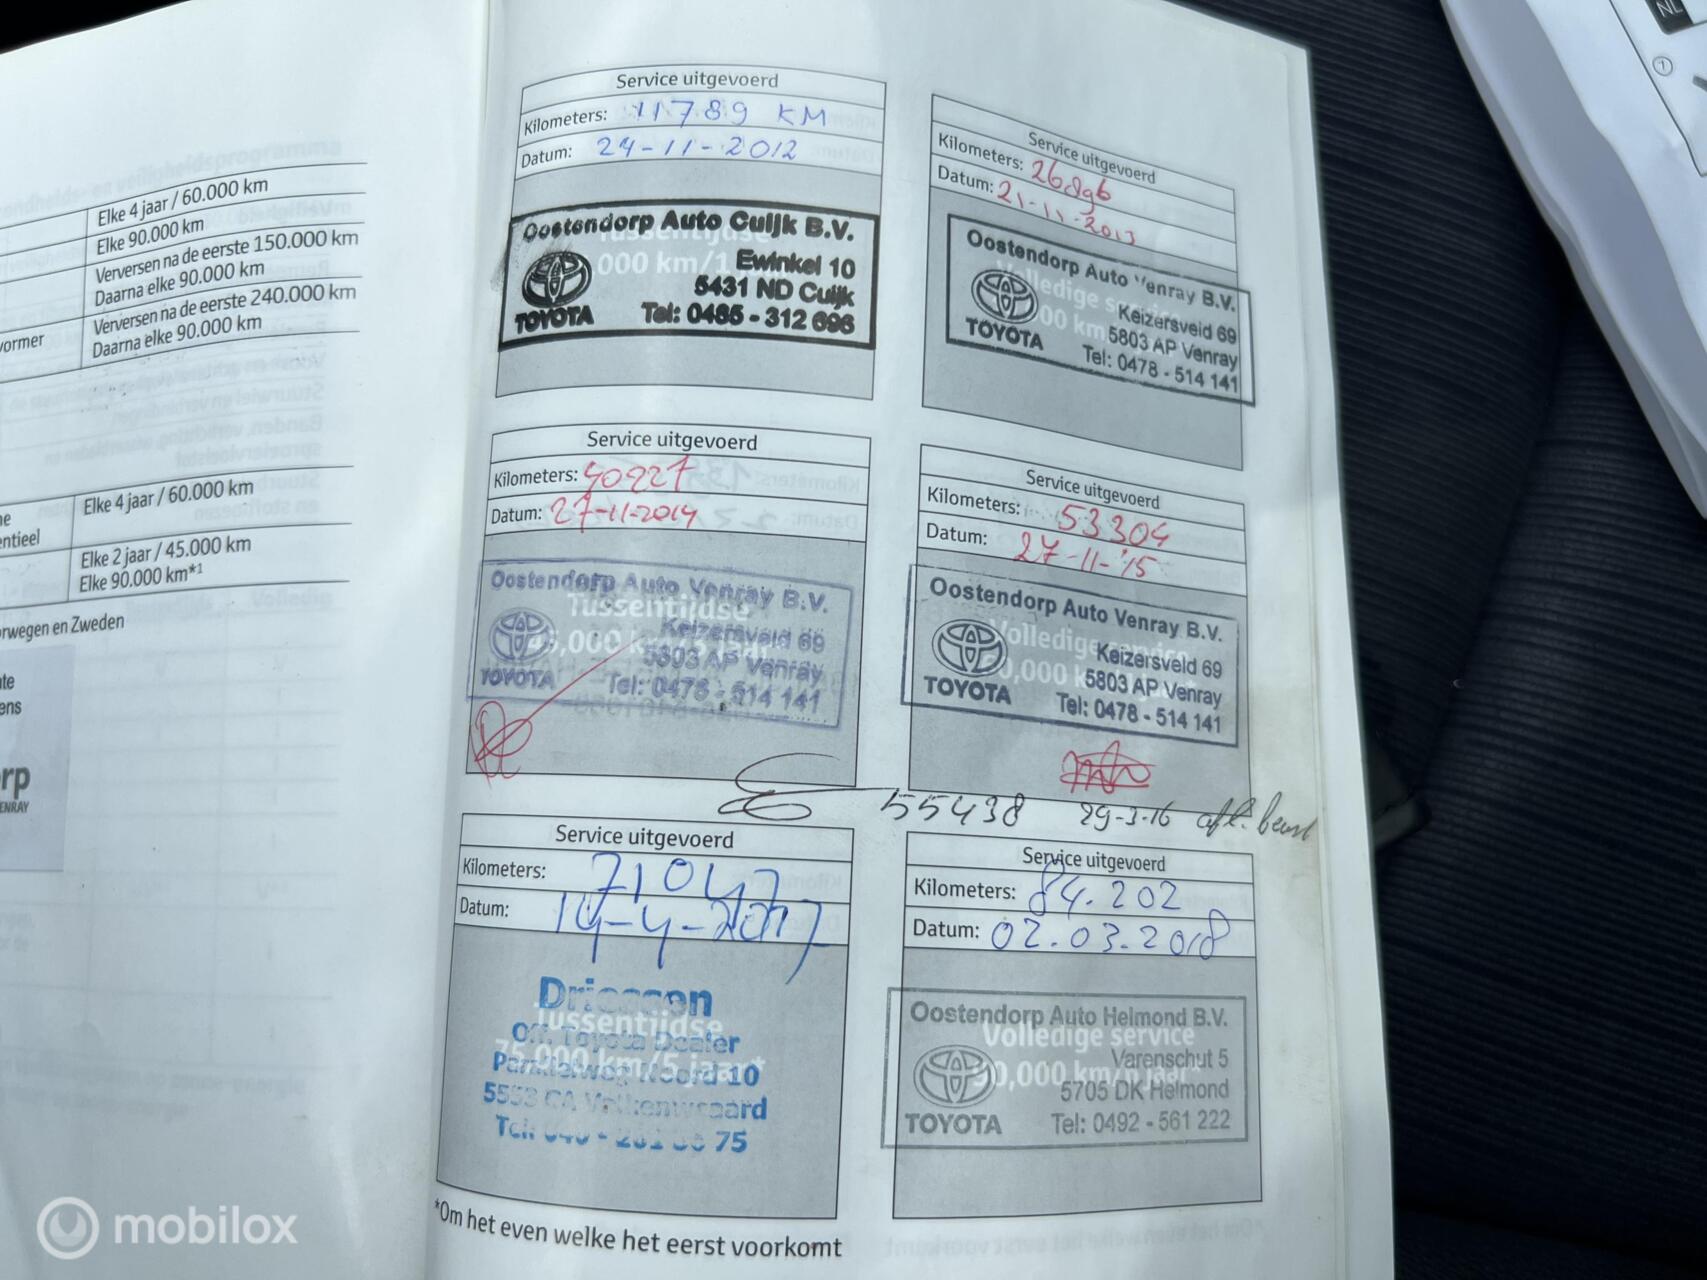 Elke 4 jaar / 60.000 km
Elke 90.000 km
Verversen na de eerste 150.000 km
Daarna elke 90.000 km
Verversen na de eerste 240.000 km
vormer
Daarna elke 90.000 km
Elke 4 jaar / 60.000 km
entieel
Elke 2 jaar / 45.000 km
Elke 90.000 km*1
rwegen en Zweden
rp
ENRAY
Service uitgevoerd
Kilometers: 11789 KM
Datum: 24-11-2012
Oostendorp Auto Cuijk B.V.
Ewinkel 10
5431 ND Cuijk
TOYOTA Tel: 0485 - 312 696
Service uitgevoerd
Kilometers:
Datum: 21-11-2013
Oostendorp Auto Venray B.V.
Keizersveld 69
5803 AP Venray
TOYOTA Tel: 0478 - 514 141
Service uitgevoerd
Kilometers: 40227
Datum: 27-11-2014
Oostendorp Auto Venray B.V.
Tussentijdse
Keizersveld 69
5803 AP Venray
TOYOTA Tel: 0478 - 514 141
Service uitgevoerd
Kilometers: 53304
Datum: 27-11-'15
Oostendorp Auto Venray B.V.
Volledige service
Keizersveld 69
5803 AP Venray
TOYOTA Tel: 0478 - 514 141
55438 29-3-16
Service uitgevoerd
Kilometers: 71047
Datum: 14-4-2017
Driessen
Tussentijdse
Off. Toyota Dealer
75.000 km/5 jaar*
Noord 10
Valkenswaard
75
Service uitgevoerd
Kilometers: 84.202
Datum: 02.03.2018
Oostendorp Auto Helmond B.V.
Volledige service
Varenschut 5
5705 DK Helmond
TOYOTA Tel: 0492 - 561 222
*Om het even welke het eerst voorkomt
NL
mobilox